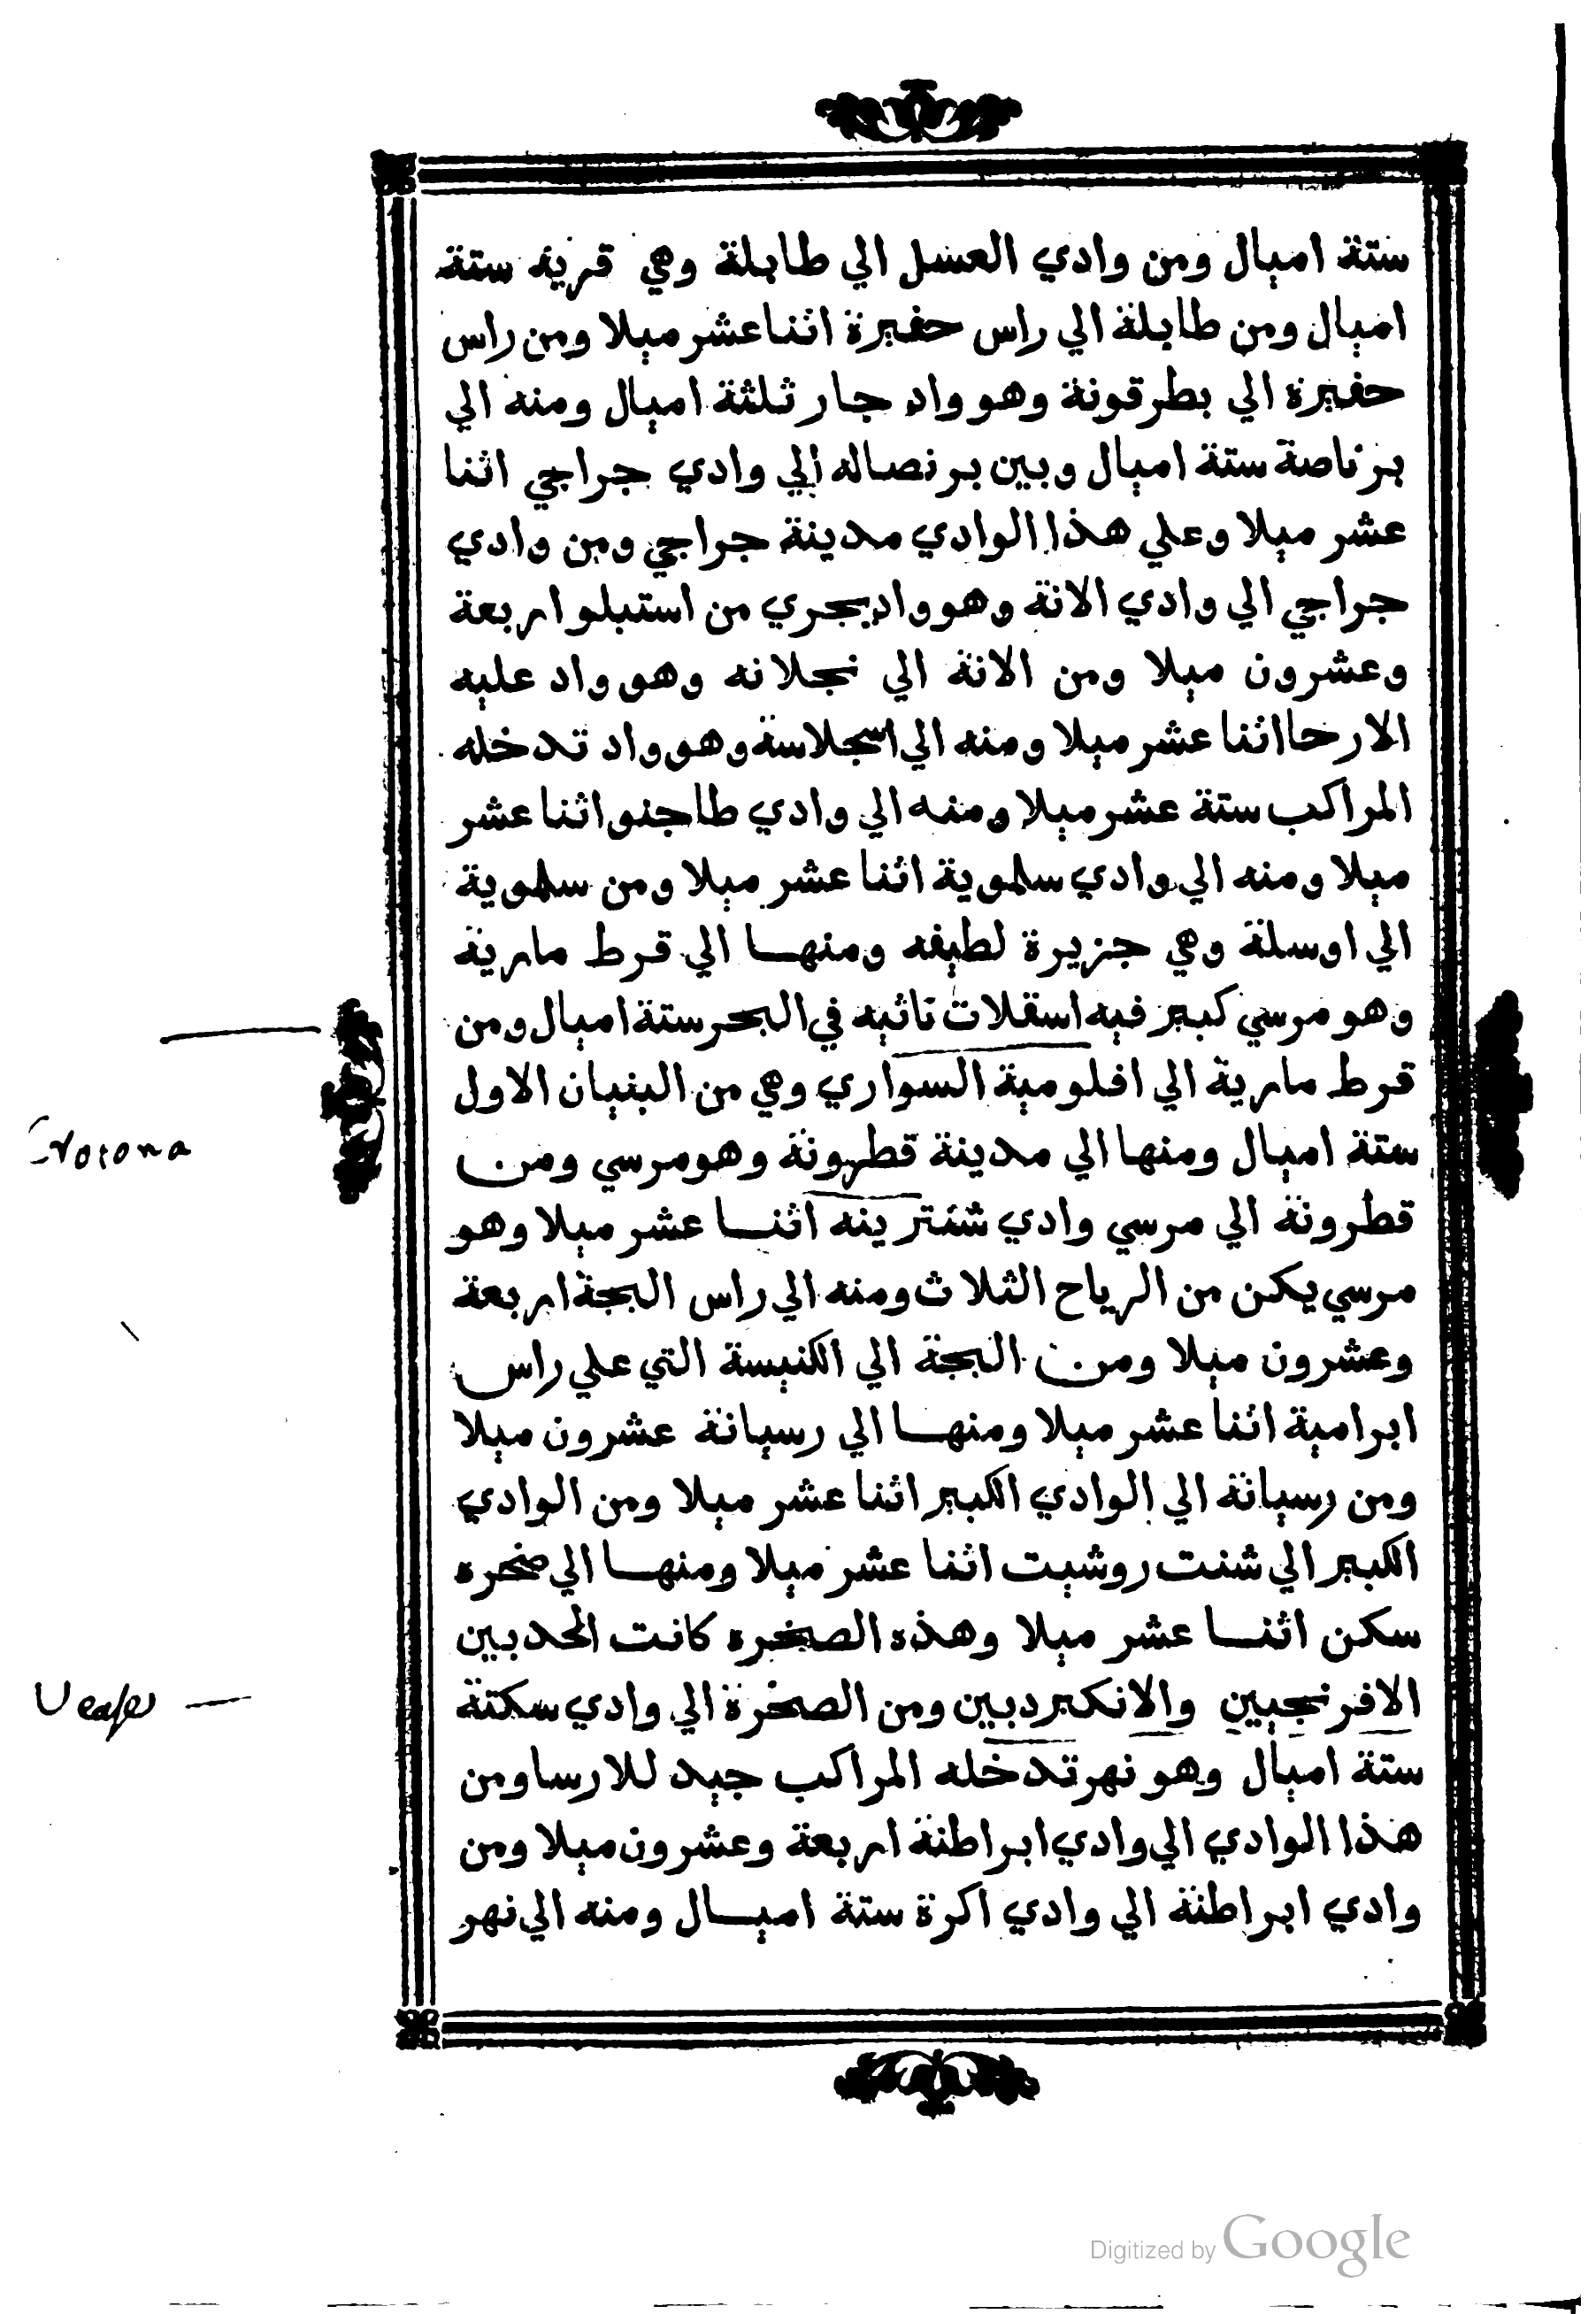 ستة اميال ومن وادي العسل الي طابلة وهي قرية ستة
اميال ومن طابلة الي راس حفيرة اثنا عشر ميلا ومن راس
حفيرة الي بطرقونة وهو واد جار ثلثة اميال ومنه الي
برناصة ستة اميال وبين برنصاله الي وادي جراجي اثنا
عشر ميلا وعلي هذا الوادي مدينة جراجي ومن وادي
جراجي الي وادي الانة وهو واد يجري من استبلو اربعة
وعشرون ميلا ومن الانة الي نجلانه وهو واد عليه
الارحا اثنا عشر ميلا ومنه الي اسجلاسة وهو واد تدخله
المراكب ستة عشر ميلا ومنه الي وادي طاجنو اثنا عشر
ميلا ومنه الي وادي سلموية اثنا عشر ميلا ومن سلموية
الي اوسلة وهي جزيرة لطيفه ومنها الي قرط مارية
وهو مرسي كبير فيه اسقلات ناتيه في البحر ستة اميال ومن
قرط مارية الي افلومية السواري وهي من البنيان الاول
ستة اميال ومنها الي مدينة قطرونة وهو مرسي ومن
قطرونة الي مرسي وادي شنترينه اثنا عشر ميلا وهو
مرسي يكن من الرياح الثلاث ومنه الي راس البجة اربعة
وعشرون ميلا ومن البجة الي الكنيسة التي علي راس
ابرامية اثنا عشر ميلا ومنها الي رسيانة عشرون ميلا
ومن رسيانة الي الوادي الكبير اثنا عشر ميلا ومن الوادي
الكبير الي شنت روشيت اثنا عشر ميلا ومنها الي صخره
سكن اثنا عشر ميلا وهذه الصخره كانت الحد بين
الافرنجيين والانكبرديين ومن الصخرة الي وادي سكتة
ستة اميال وهو نهر تدخله المراكب جيد للارسا ومن
هذا الوادي الي وادي ابراطنة اربعة وعشرون ميلا ومن
وادي ابراطنة الي وادي اكرة ستة اميال ومنه الي نهر
Crotona
Digitized by Google